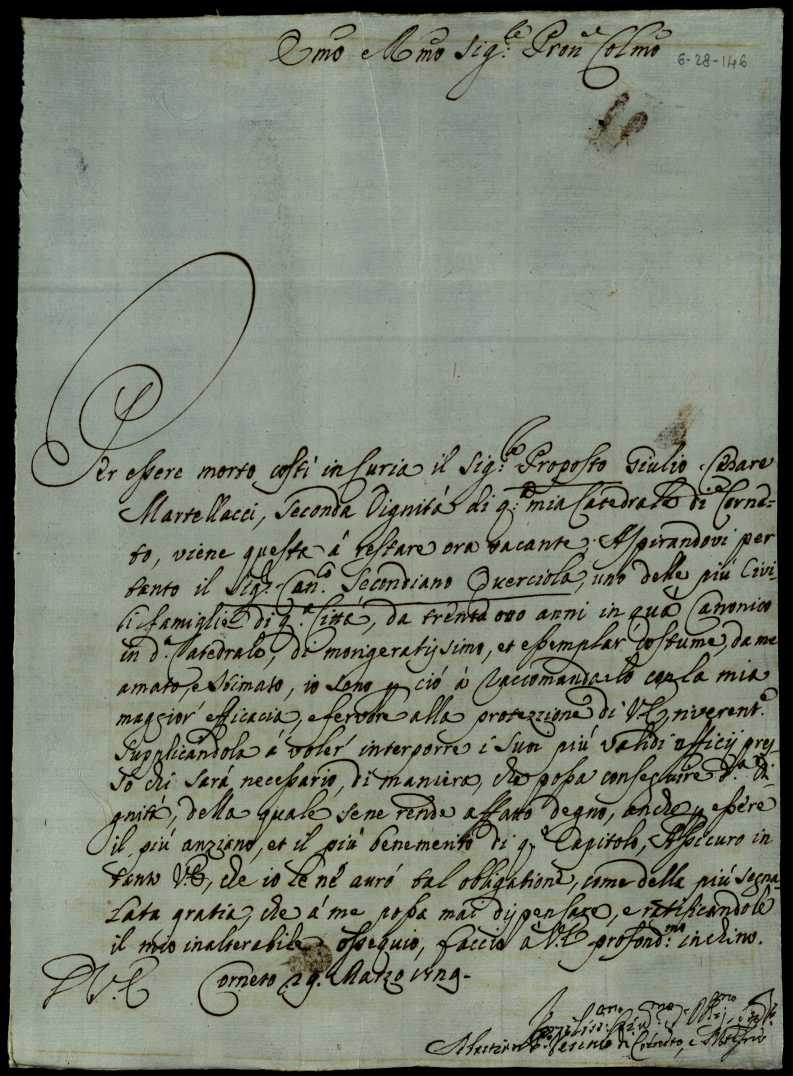 Emo e Rmo Sig.re Pron Colmo
6-28-146
Per essere morto costì in Curia il Sig.re Proposto Giulio Cesare
Martellacci, seconda Dignità di q.ta mia Catedrale di Corne-
to, viene questa à restare ora vacante. Aspirandovi per
tanto il Sig.r Can.co Secondiano Querciola, uno delle più Civi-
li famiglie di q.a Città, da trenta otto anni in quà Canonico
in d.a Catedrale, di morigeratissimo, et essemplar costume, da me
amato, e stimato, io sono p ciò à raccomandarlo con la mia
maggior' efficacia, e fervore alla protezzione di V.E, riverent.e
supplicandola à voler' interporre i suoi più validi officij pres-
so chi sarà necessario, di maniera, che possa conseguire d.a Di-
gnità, della quale sene rende affatto degno, anche p essere
il più anziano, et il più benemerito di q.o Capitolo, Assicuro in
tanto V.E, che io le nè aurò tal obligatione, come della più segna-
lata gratia, che à me possa mai dispensare, e ratificandole
il mio inalterabile ossequio, faccio à V.E profond.mo inchino.
D V.E Corneto 29. Marzo
di Corneto, e